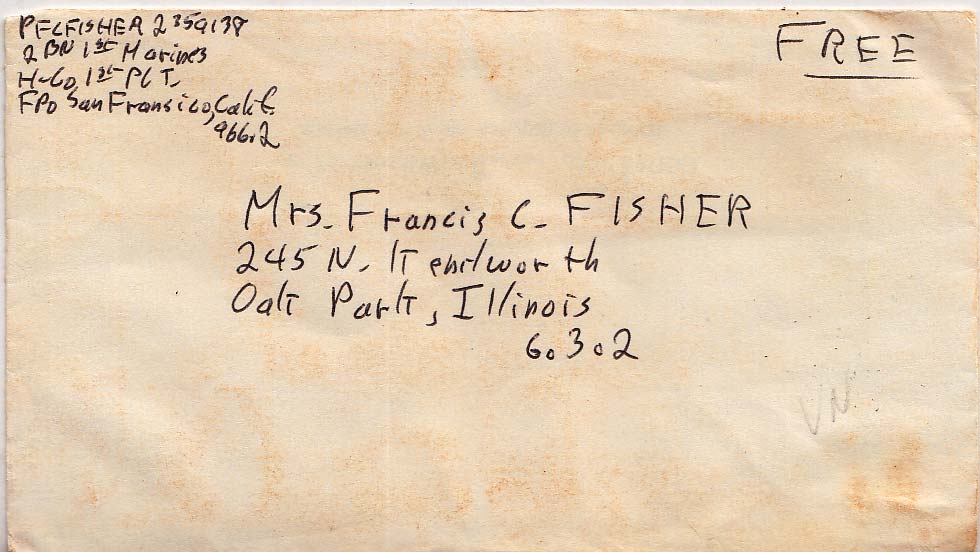 PFC FISHER 2359138
2 BN 1st Marines
H-Co, 1st PLT.
FPO San Fransico, Calif.
96602
FREE
Mrs. Francis C. FISHER
245 N. Kenilworth
Oak Park, Illinois
60302
VN